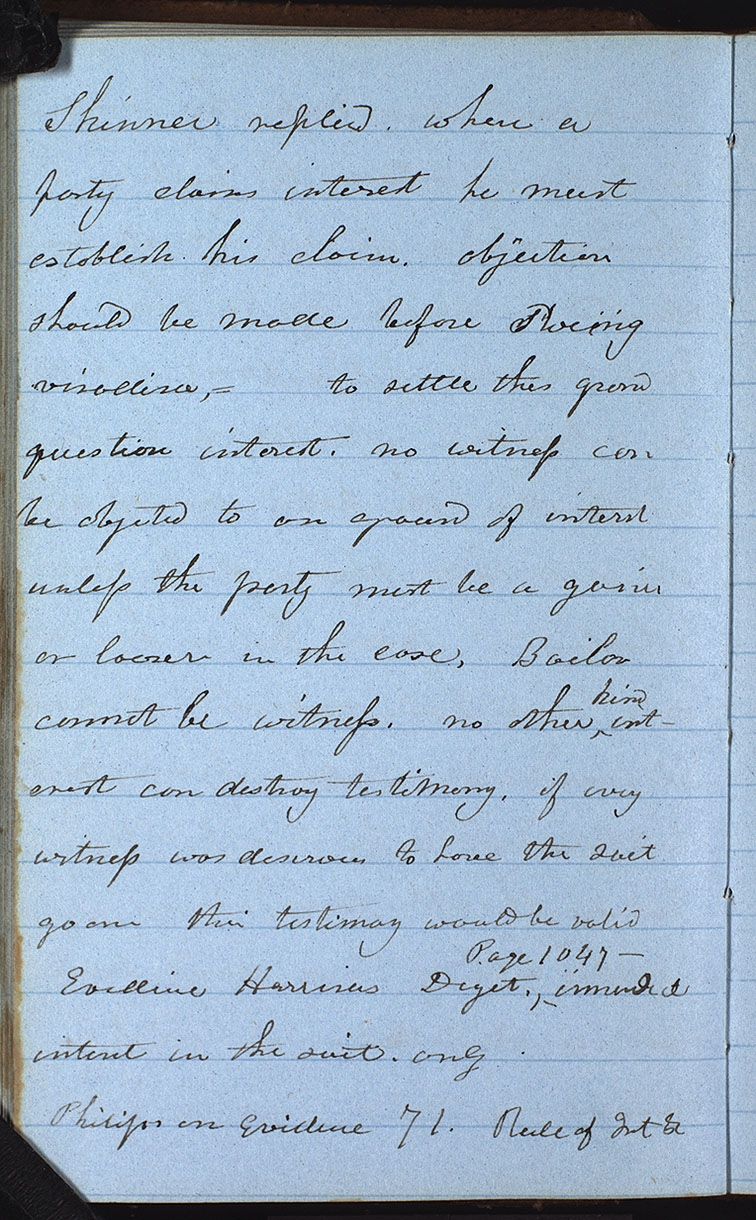 Skinner replied. when a
party claims interest he must
establish his claim. objection
should be made before
to settle this
question interest. no witness can
be objected to on ground of interest
unless the party must be a gainer
or looser in the case, Bailor
cannot be witness. no other kind int-
erest can destroy testimony. if every
witness was desirous to have the suit
go on their testimony would be valid
Page 1047 —
Evidence Harrisons Digest.,
interest in the suit. only
Philips on Evidence 71. Rule of Int &c